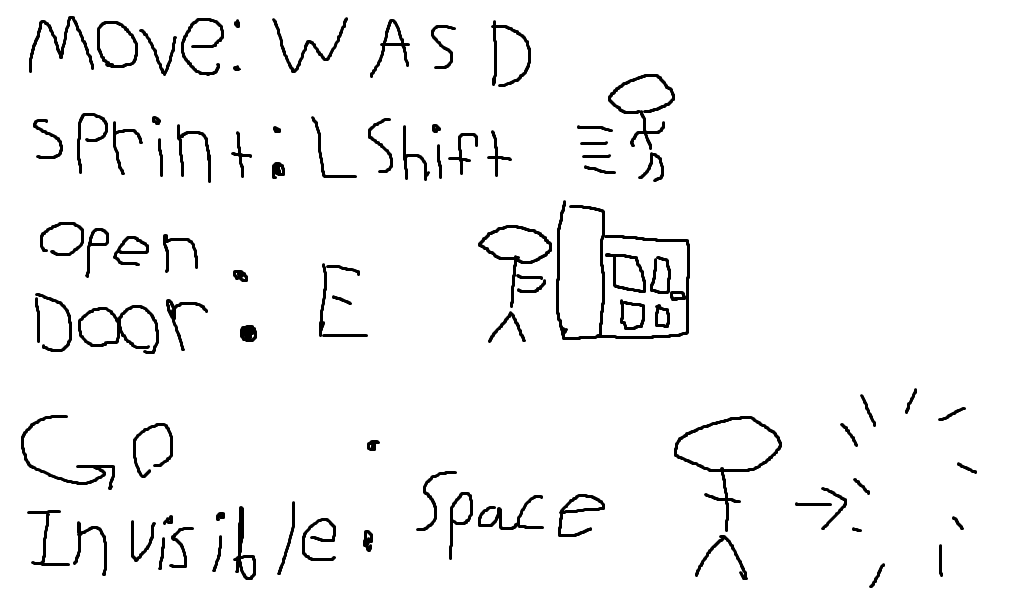 Move: W A S D
sprint: L Shift
open
Door: E
Go
Invisible: Space